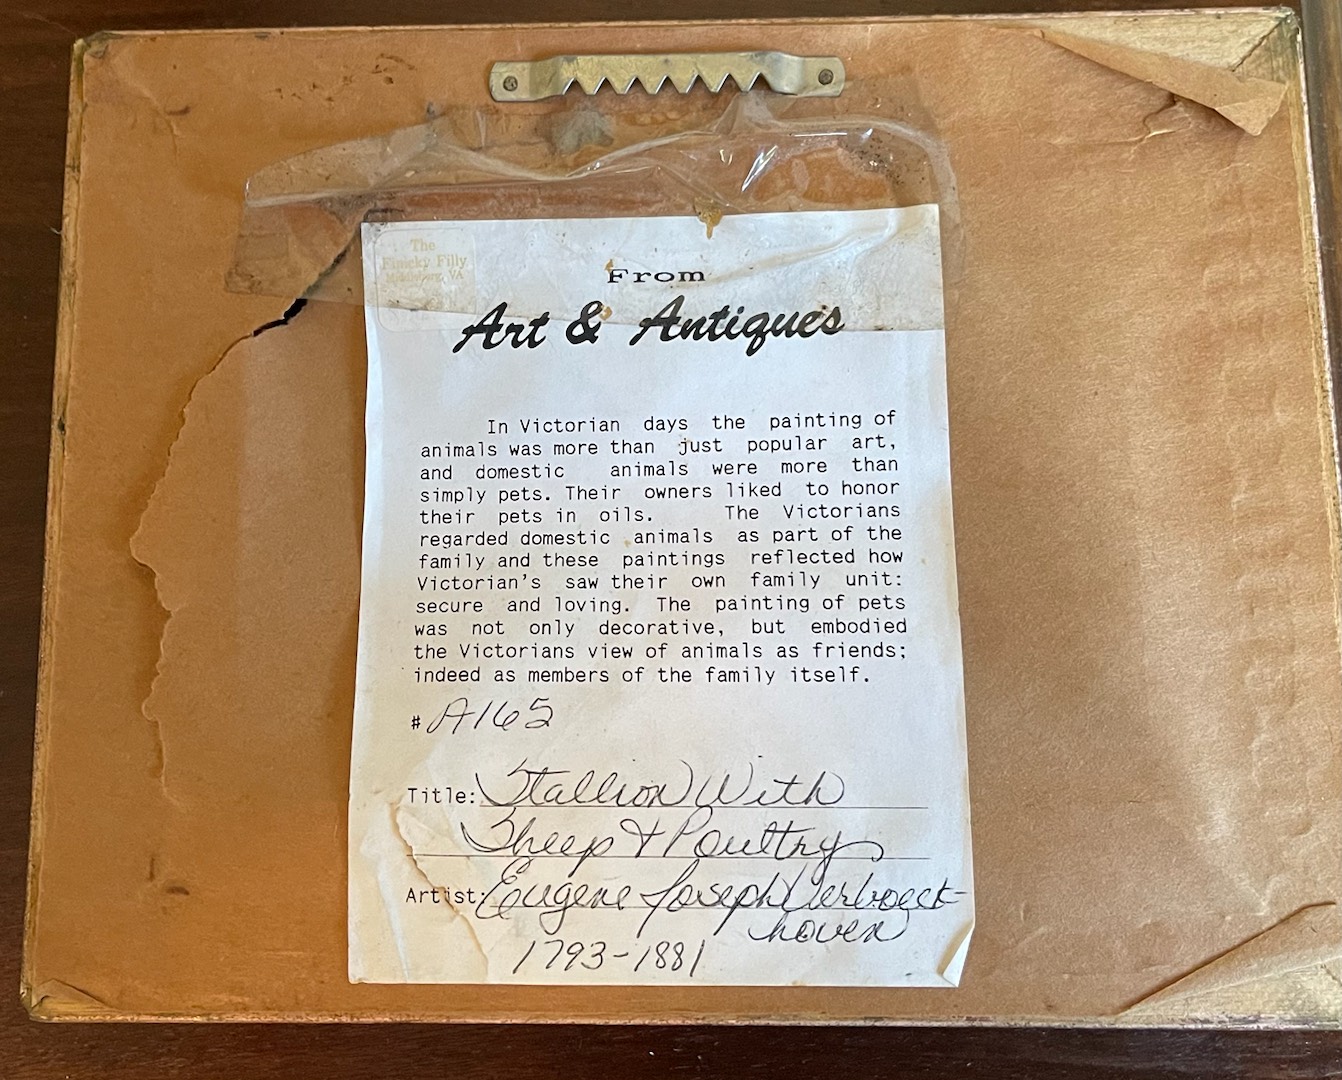 The
Finicky Filly
Middleburg, VA
From
Art & Antiques
In Victorian days the painting of
animals was more than just popular art,
and domestic animals were more than
simply pets. Their owners liked to honor
their pets in oils. The Victorians
regarded domestic animals as part of the
family and these paintings reflected how
Victorian's saw their own family unit:
secure and loving. The painting of pets
was not only decorative, but embodied
the Victorians view of animals as friends;
indeed as members of the family itself.
# A165
Title: Stallion With
Sheep & Poultry
Artist: Eugene Joseph Verboeck-
hoven
1793-1881